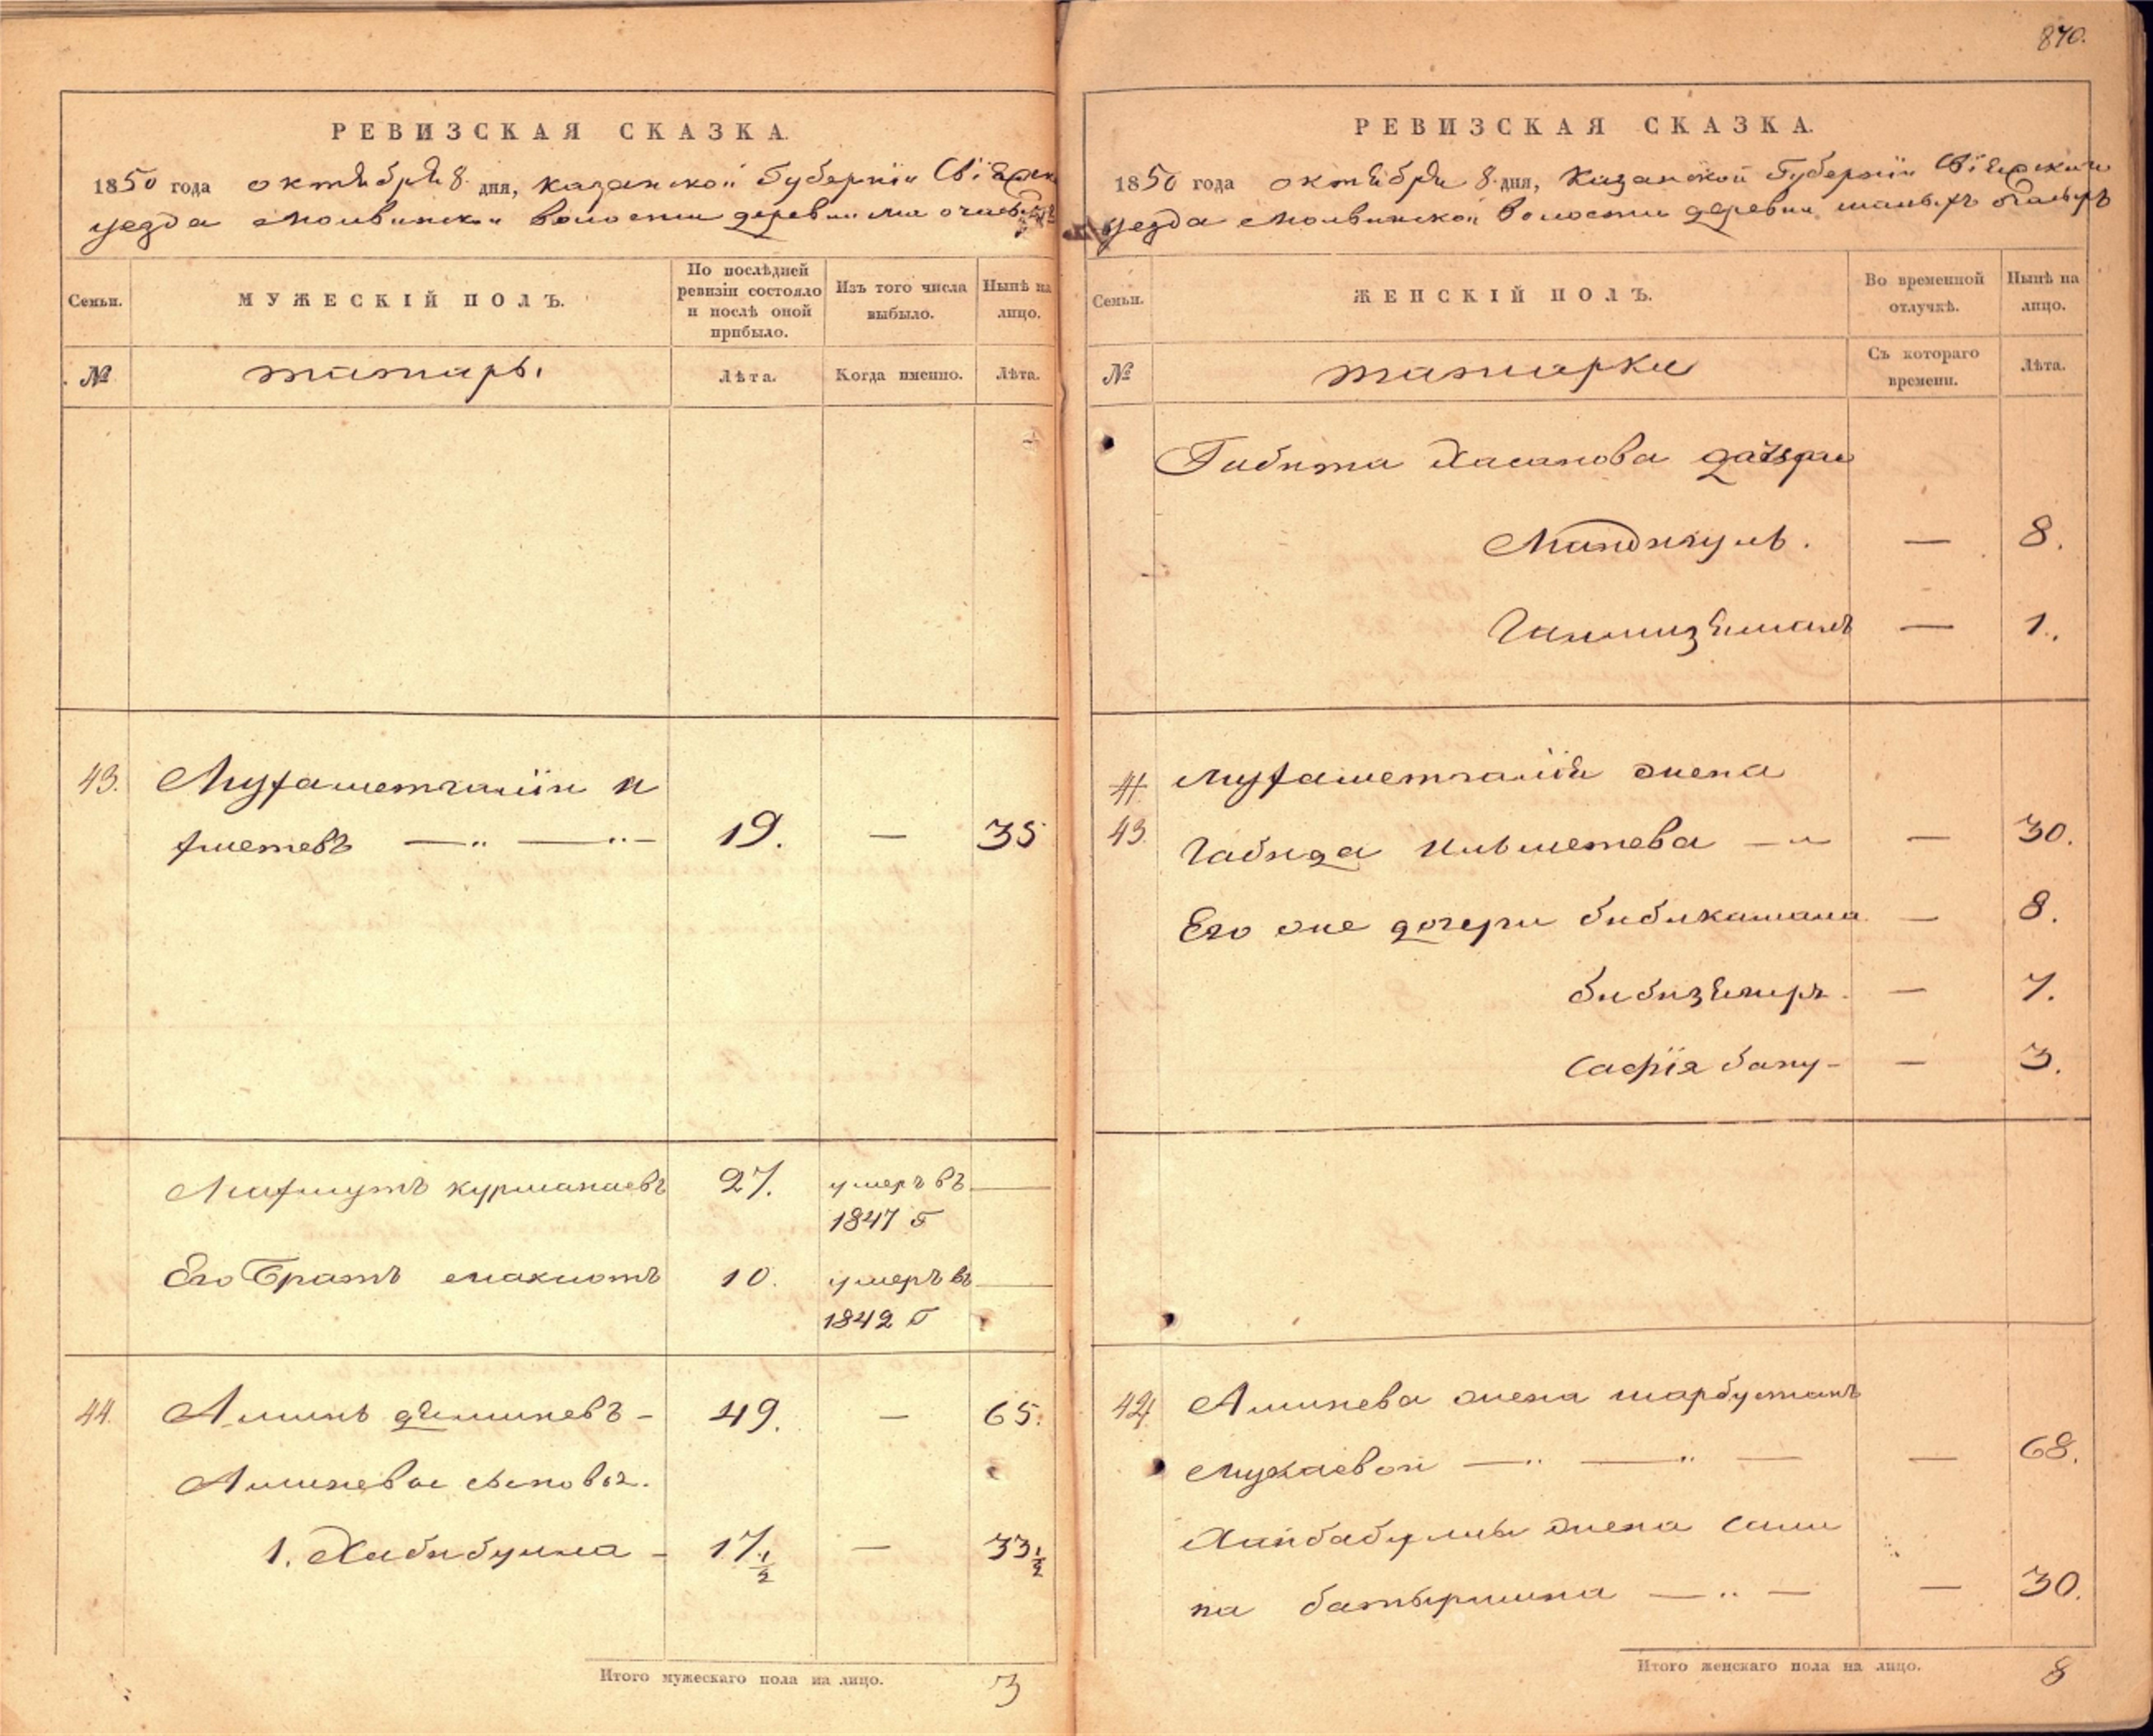 РЕВИЗСКАЯ СКАЗКА.
1850 года октября 8 дня, Казанской Губернiи Свiяжс
уезда Молвинской волости деревни
Семьи.
МУЖЕСКІЙ ПОЛЪ.
По послѣдней ревизіи состояло и послѣ оной прибыло.
Изъ того числа выбыло.
Нынѣ на лицо.
№
татаръ.
Лѣта.
Когда именно.
Лѣта.
43. Мухаметгалiи
Ахметевъ 19. — 35
Махмутъ Курманаевъ 27. умеръ въ —
1847 г
Его Братъ 10. умеръ въ —
1842 г
44. Аминь 49. — 65.
Аминевы сыновья.
1. Хабибулла - 17 1/2 — 33 1/2
Итого мужескаго пола на лицо. 3
870.
РЕВИЗСКАЯ СКАЗКА.
1850 года октября 8 дня, Казанской Губернiи Свiяжскаго
уезда Молвинской волости деревни малыхъ
Семьи.
ЖЕНСКІЙ ПОЛЪ.
Во временной отлучкѣ.
Нынѣ на лицо.
№
татарки
Съ котораго времени.
Лѣта.
Габита Хасанова дочери
— 8.
— 1.
41. Мухаметгалiя жена
43. Габида Ильметева — 30.
Его же дочери Бибикамала — 8.
— 7.
Сафiя бану - — 3.
42 Аминева жена Шарбустанъ
— 68.
жена Сали
на Батыршина — 30.
Итого женскаго пола на лицо. 8